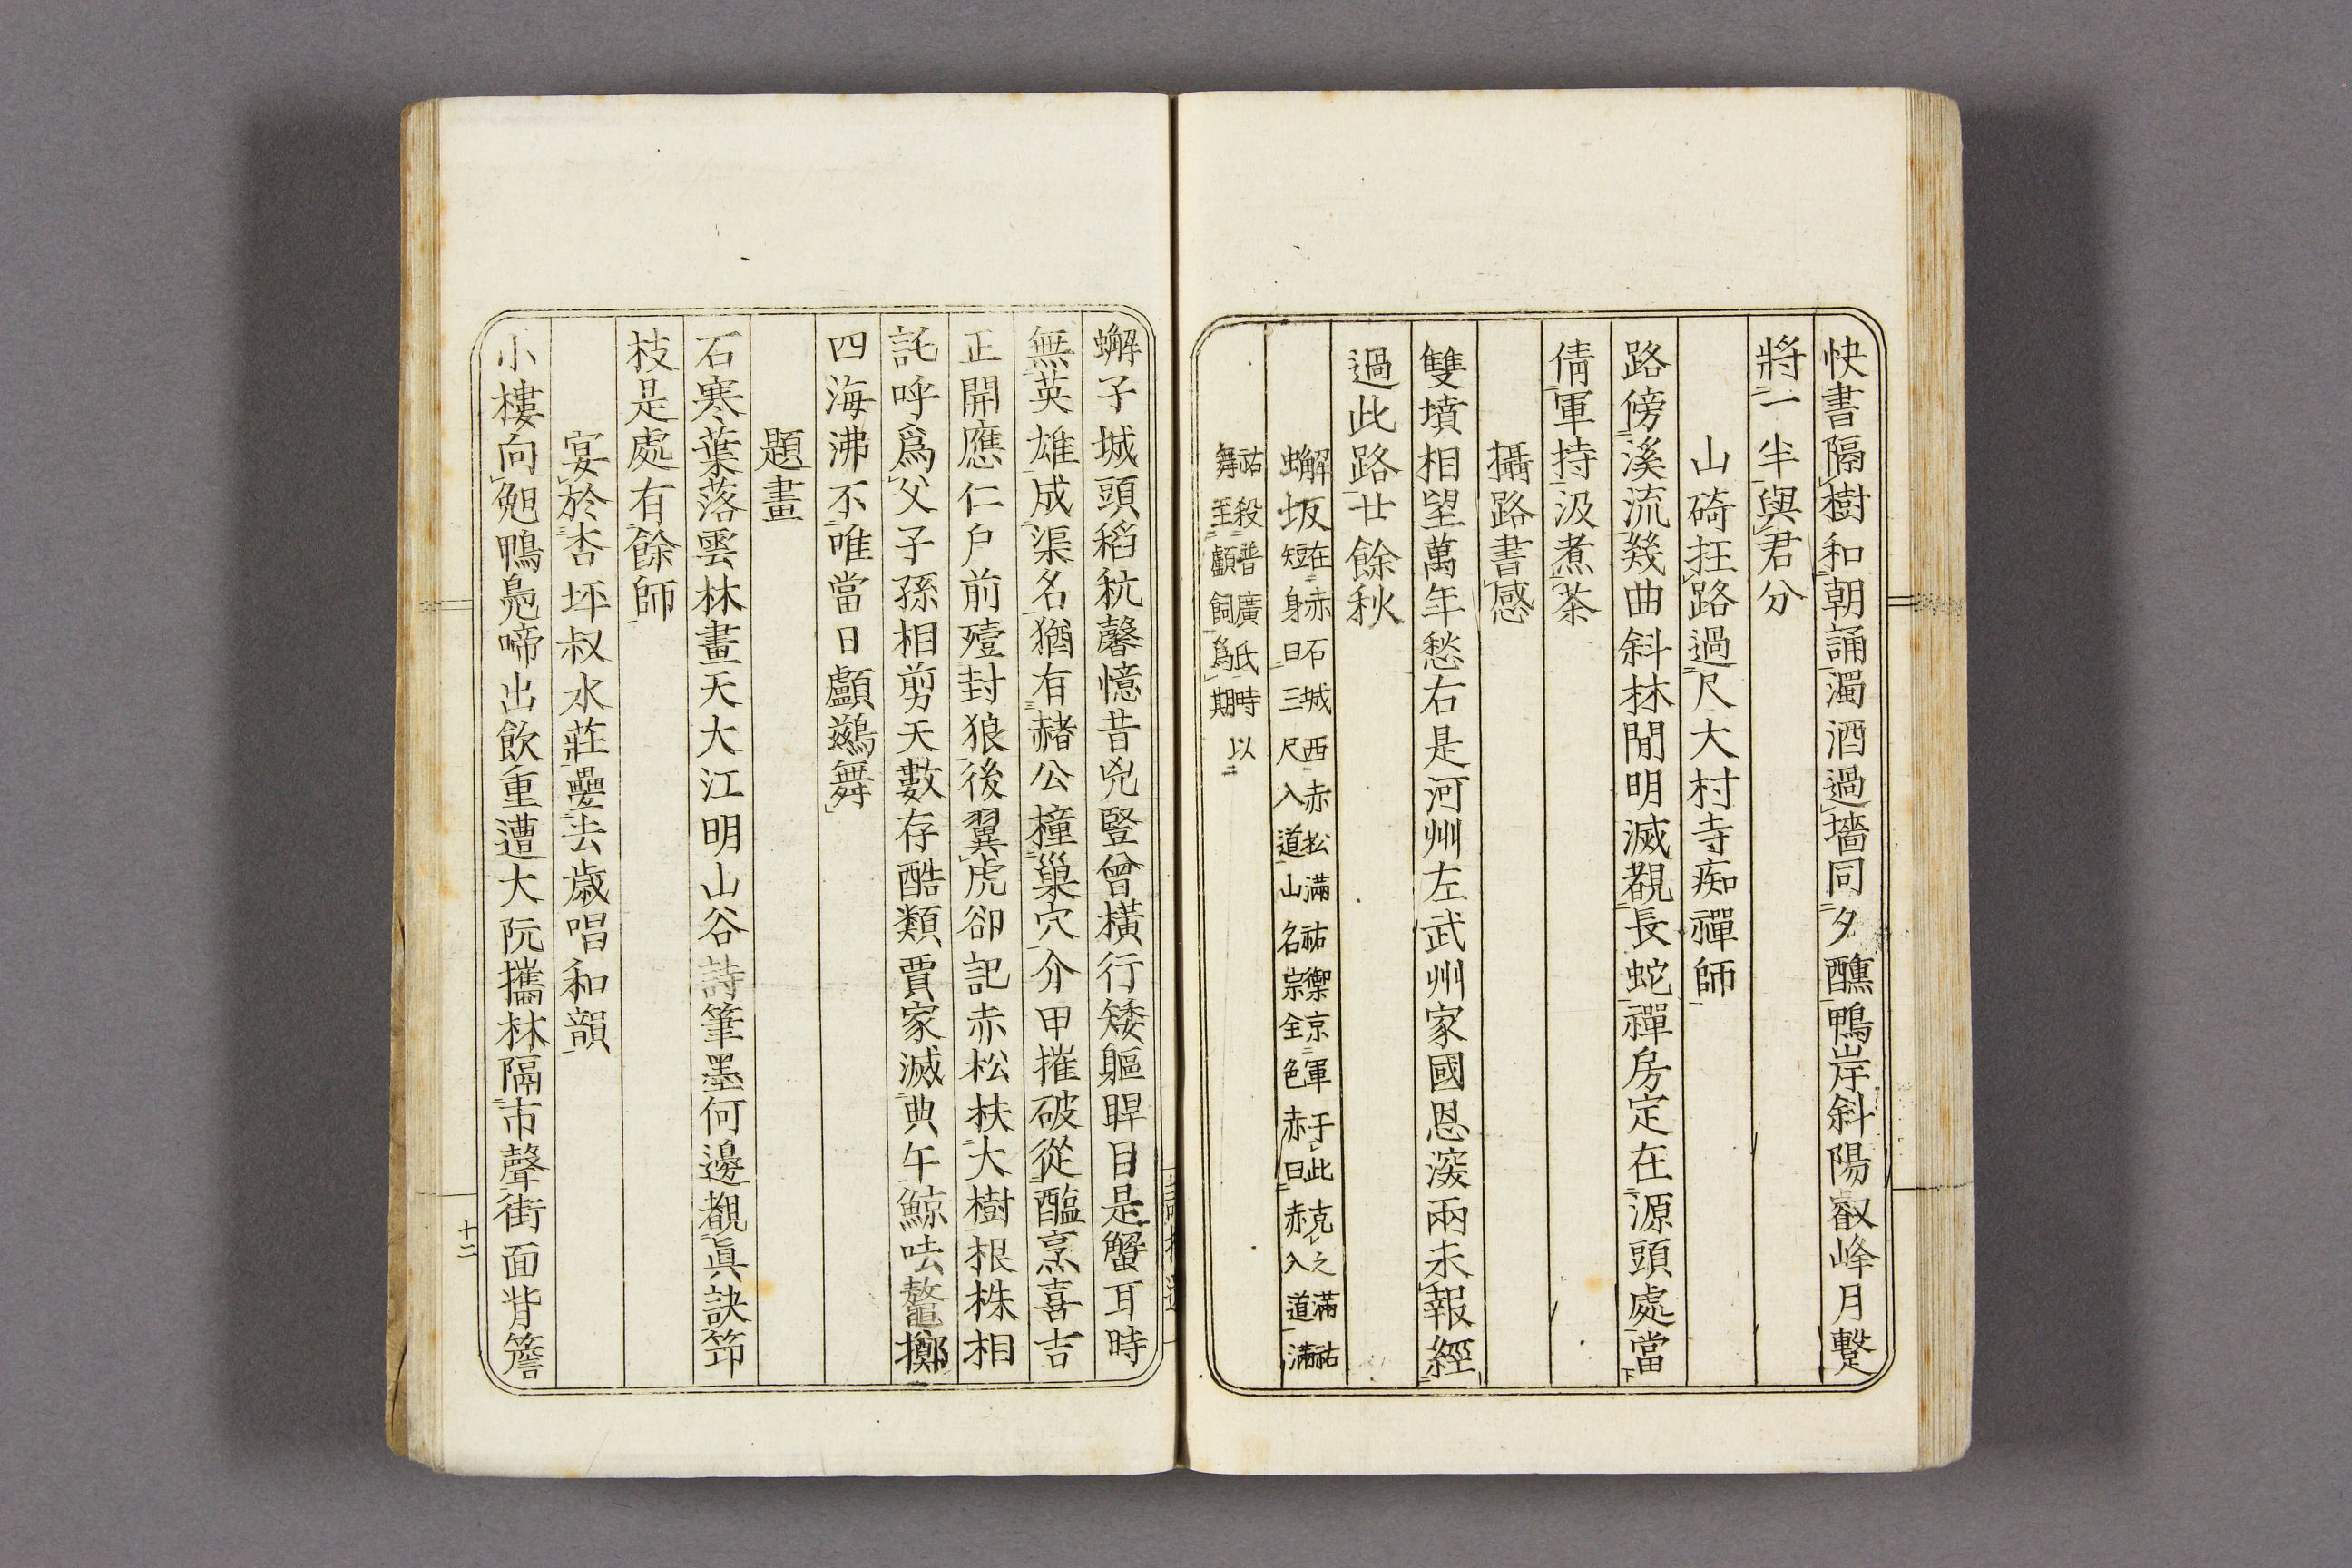 快書隔樹和朝誦濁酒過墻同夕醺鴨岸斜陽叡峰月甃
將一半與君分
山碕抂路過尺大村寺痴禪師
路傍溪流幾曲斜林閒明滅覩長蛇禪房定在源頭處當
倩軍持汲煮茶
攝路書感
雙墳相望萬年愁右是河州左武州家國恩深兩未報經
過此路廿餘秋
蠏坂在赤石城西赤松滿祐禦京軍于此克之滿祐
短身曰三尺入道山名宗全色赤曰赤入道滿
祐殺普廣氏時以
舞至顱飼爲期
蠏子城頭稻秔馨憶昔兇豎曾橫行矮軀睅目是蟹耳時
無英雄成渠名猶有赭公撞巢穴介甲摧破從醢烹喜吉
正開應仁戶前殪封狼後翼虎卻記赤松扶大樹根株相
託呼爲父子孫相剪天數存酷類賈家滅典午鯨呿鼇擲
四海沸不唯當日顱鷀舞
題畫
石寒葉落雲林畫天大江明山谷詩筆墨何邊覩眞訣笻
枝是處有餘師
宴於杏坪叔水莊疊去歲唱和韻
小樓向鴨鳧啼出飮重遭大阮攜林隔市聲街面背簷
十二